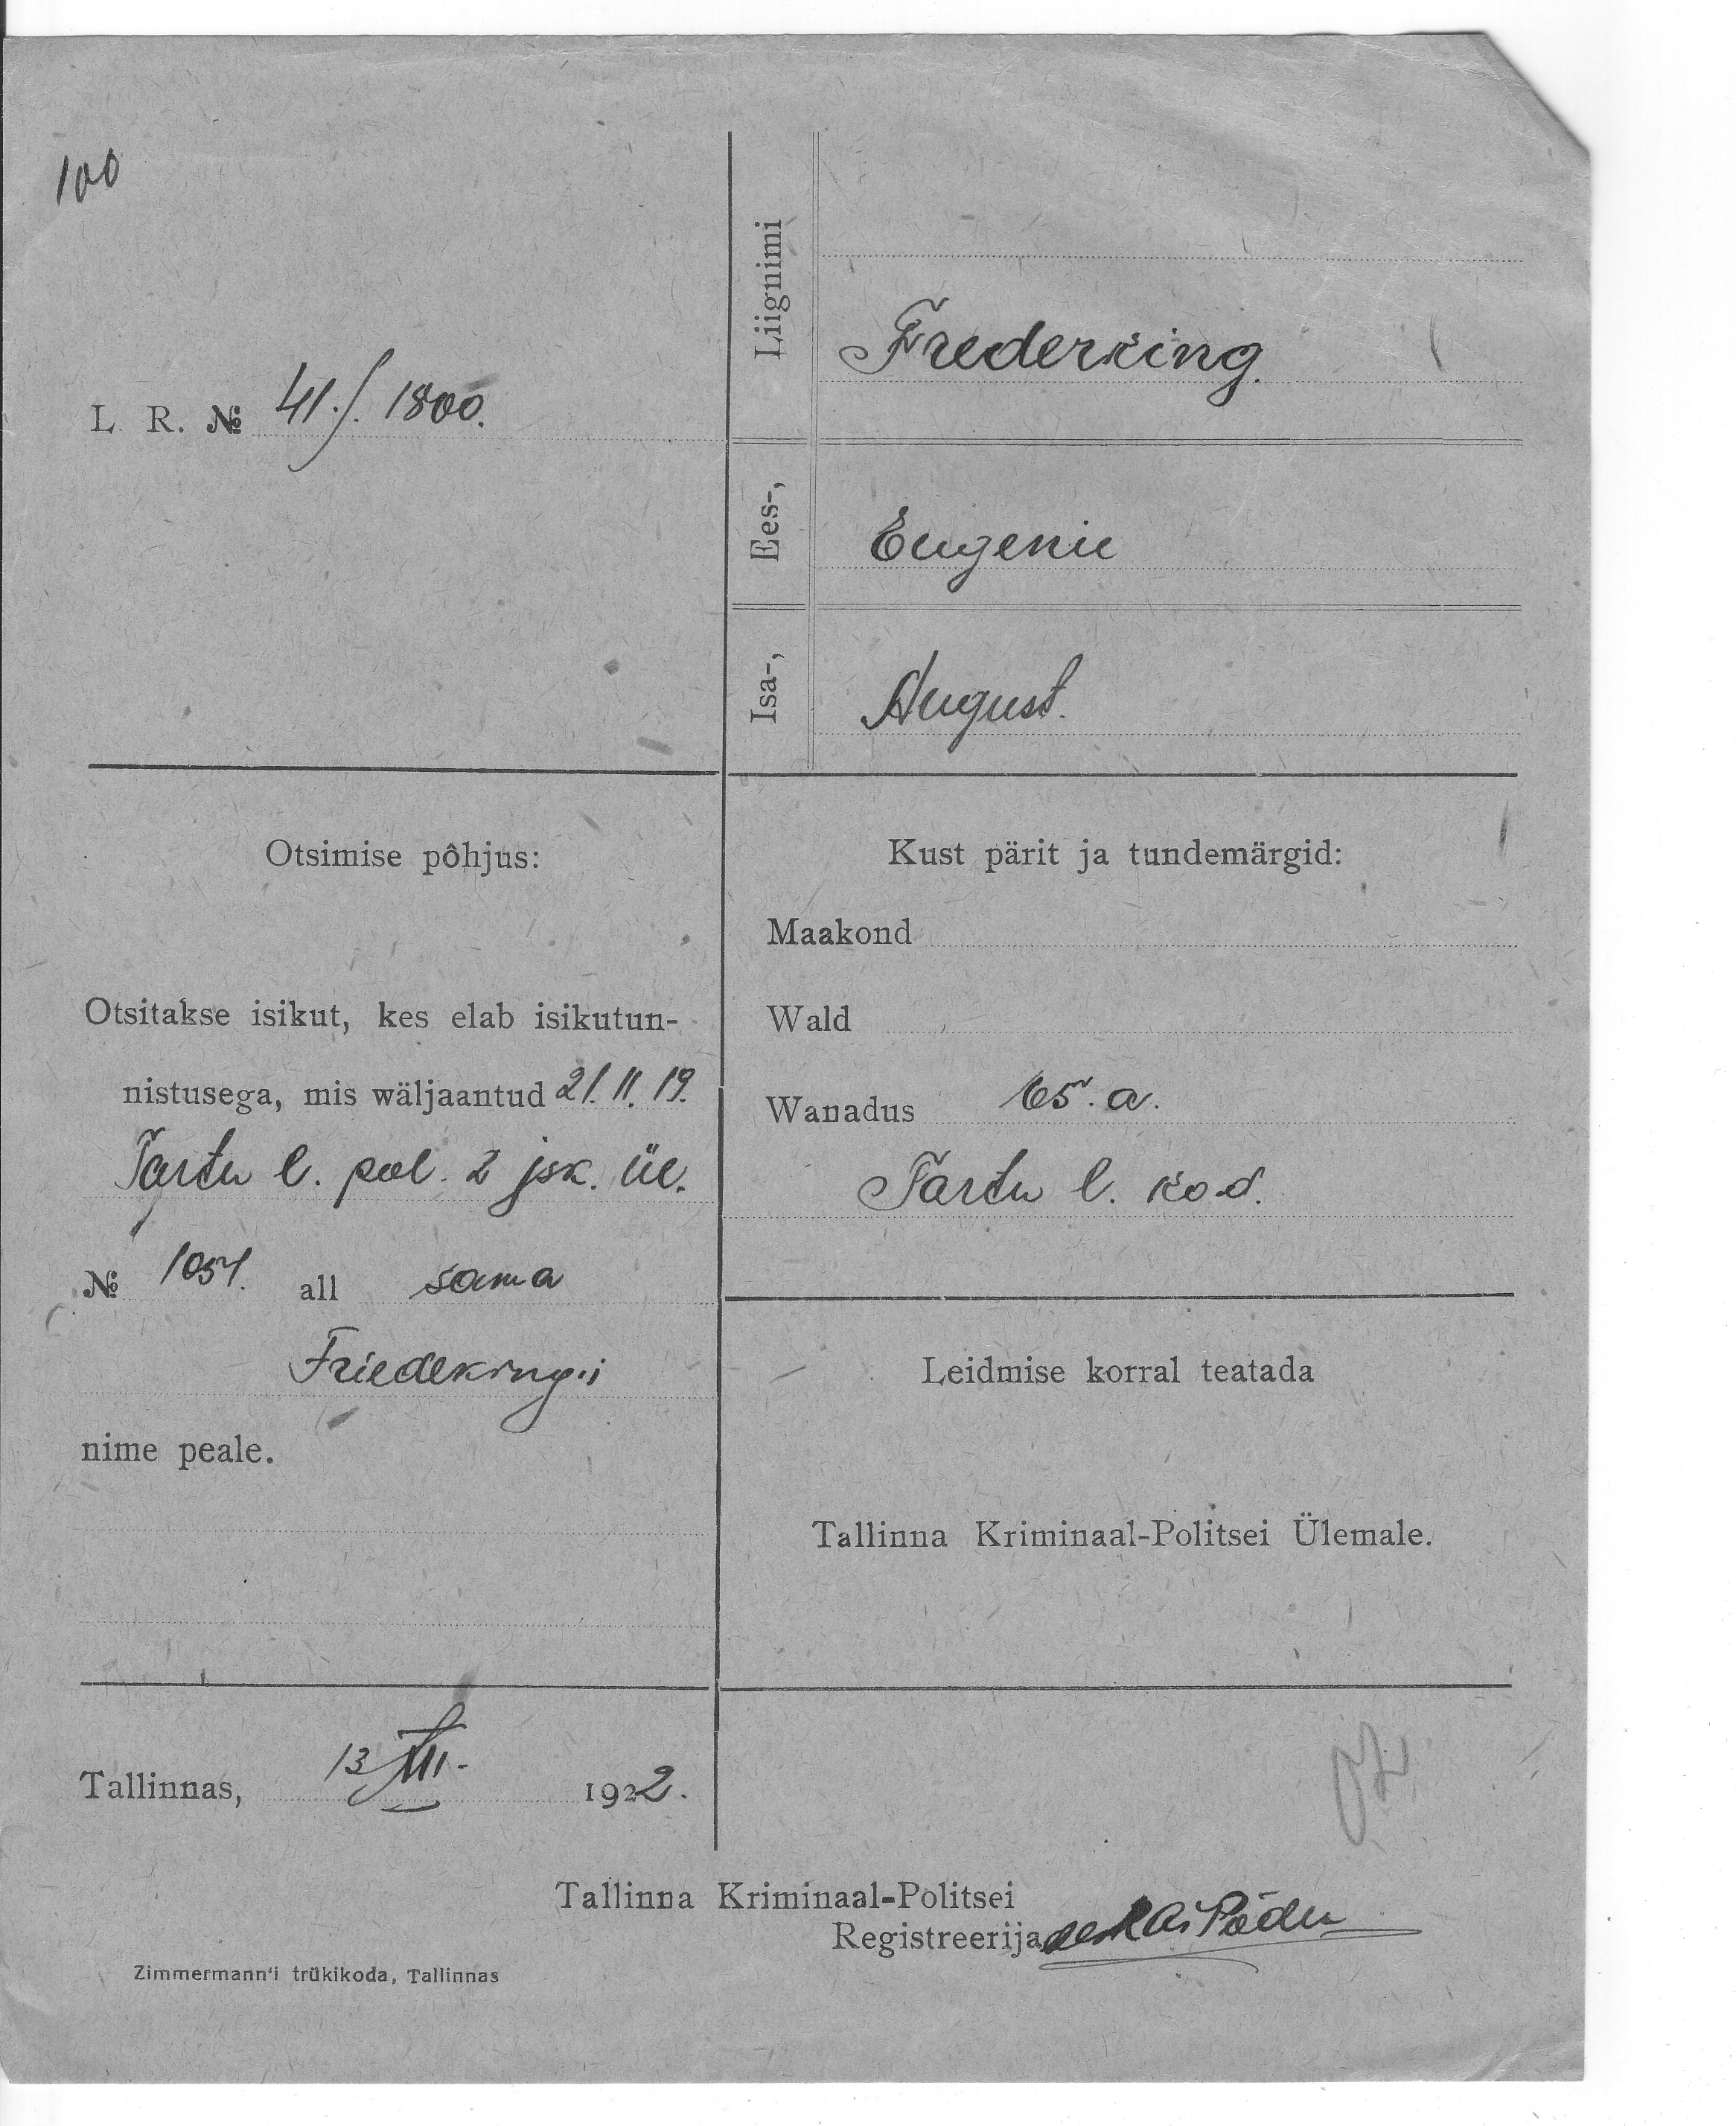 100
L. R. № 41./. 1800.
Liignimi
Frederking.
Ees-,
Eugenie
Isa-,
August.
Otsimise põhjus:
Otsitakse isikut, kes elab isikutun-
nistusega, mis wäljaantud 21. 11. 19.
Tartu l. pol. 2 jsk. ül.
№ 1054. all sama
Friedeking'i
nime peale.
Tallinnas, 13 1922.
Kust pärit ja tundemärgid:
Maakond
Wald
Wanadus 65. a.
Tartu l. kod.
Leidmise korral teatada
Tallinna Kriminaal-Politsei Ülemale.
Tallinna Kriminaal-Politsei
Registreerija
Zimmermann'i trükikoda, Tallinnas